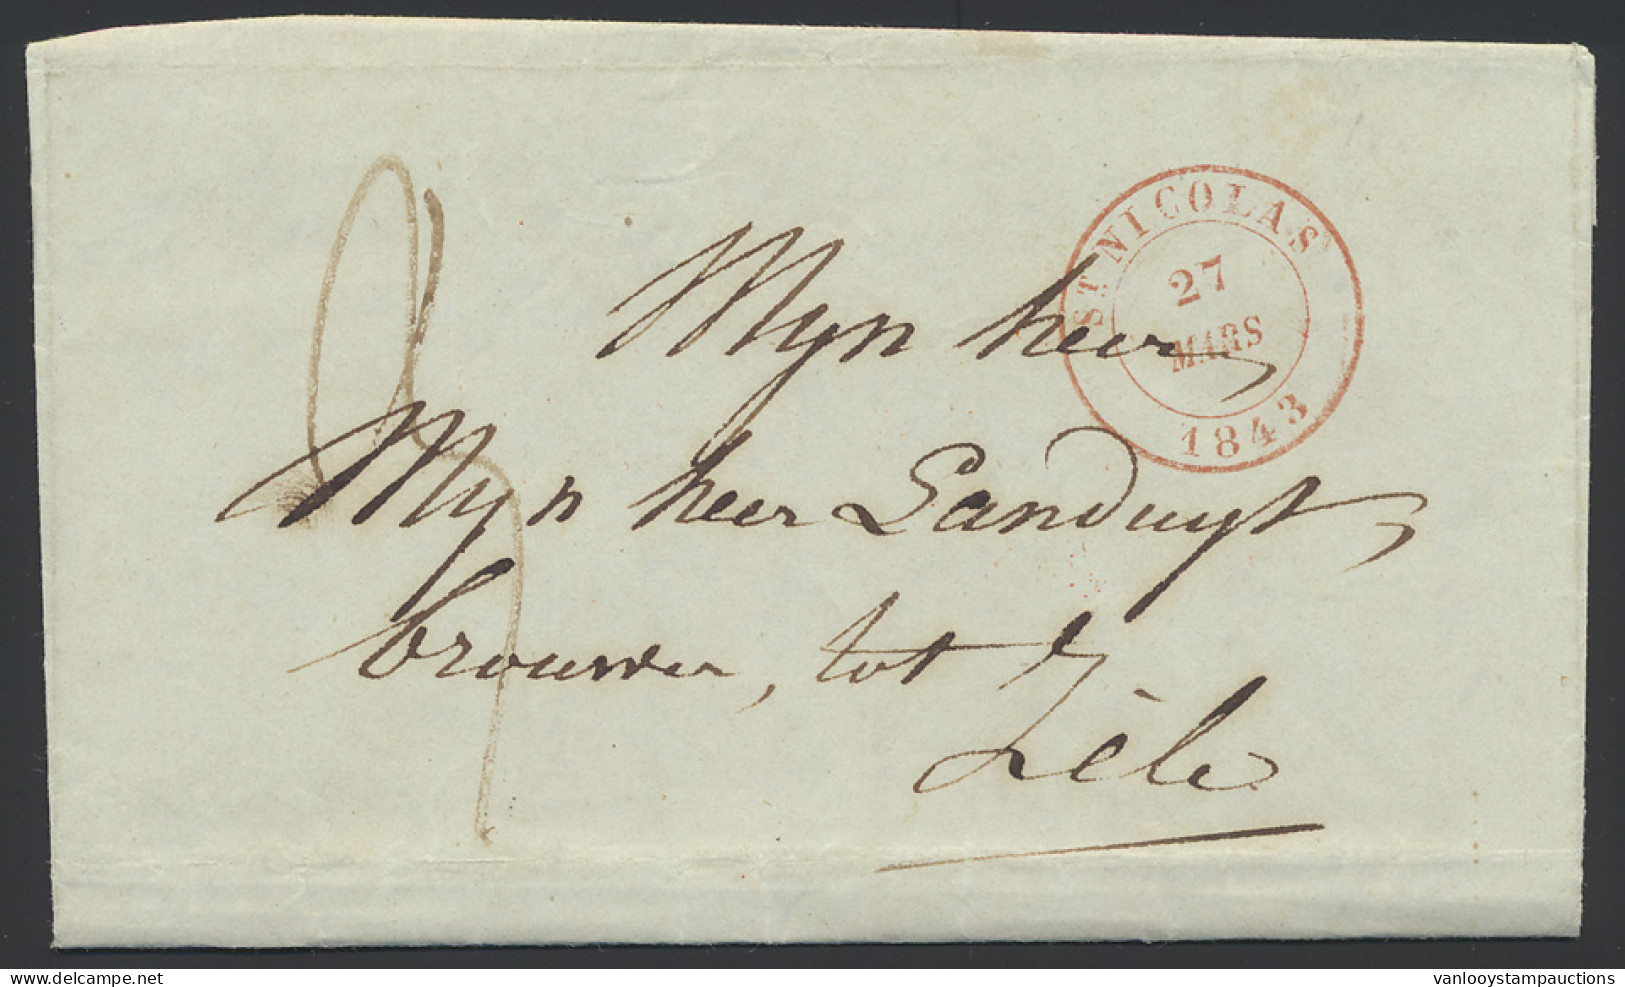 ST NICOLAS
27
MARS
1843
Mijn heer
Mijn heer Landuyt,
brouwer, tot
Zèle
delcampe.net
vanlooystampauctions